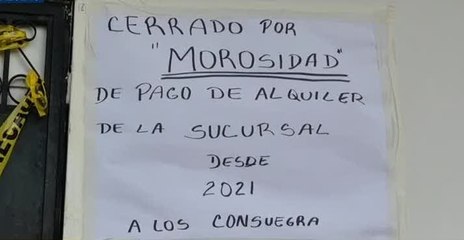 CERRADO POR
"MOROSIDAD"
DE PAGO DE ALQUILER
DE LA SUCURSAL
DESDE
2021
A LOS CONSUEGRA